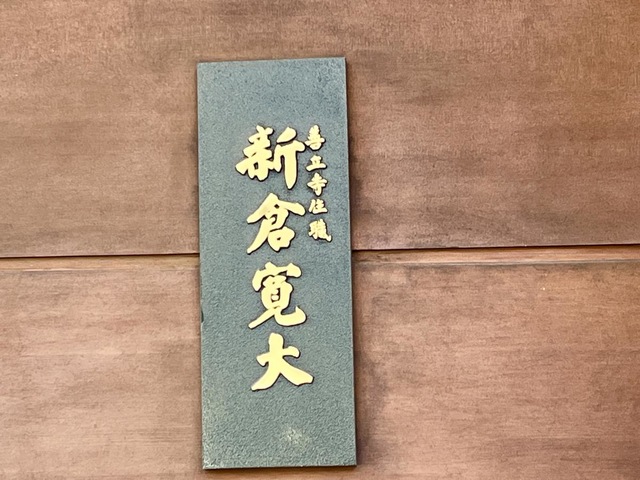 善立寺住職
新倉寛大